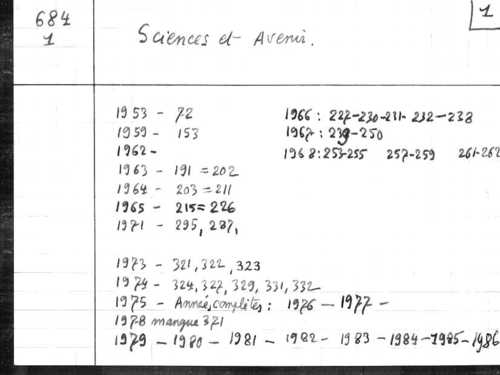 684
1
1
Sciences et Avenir.
1953 - 72
1959 - 153
1962 -
1963 - 191 = 202
1964 - 203 = 211
1965 - 215 = 226
1971 - 295,
1966 : 227-230-231-232-238
1967 : 239-250
1968 : 253-255 257-259 261-262
1973 - 321, 322, 323
1974 - 324, 327, 329, 331, 332
1975 - Années complètes : 1976 - 1977 -
1978 manque 371
1979 - 1980 - 1981 - 1982 - 1983 - 1984 - 1985 - 1986